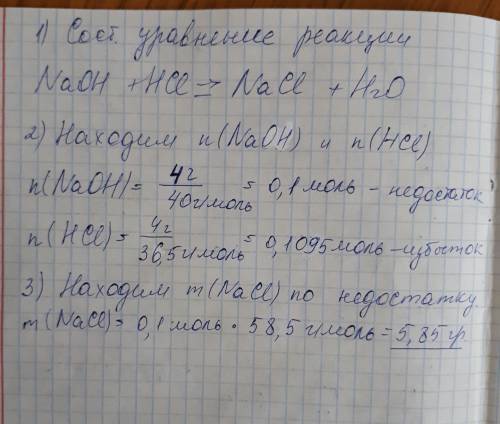 1) Сост. уравнение реакции
NaOH + HCl = NaCl + H2O
2) Находим n(NaOH) и n(HCl)
n(NaOH) = 4г / 40г/моль = 0,1 моль - недостаток
n(HCl) = 4г / 365г/моль = 0,1095 моль - избыток
3) Находим m(NaCl) по недостатку.
m(NaCl) = 0,1 моль · 58,5 г/моль = 5,85 гр